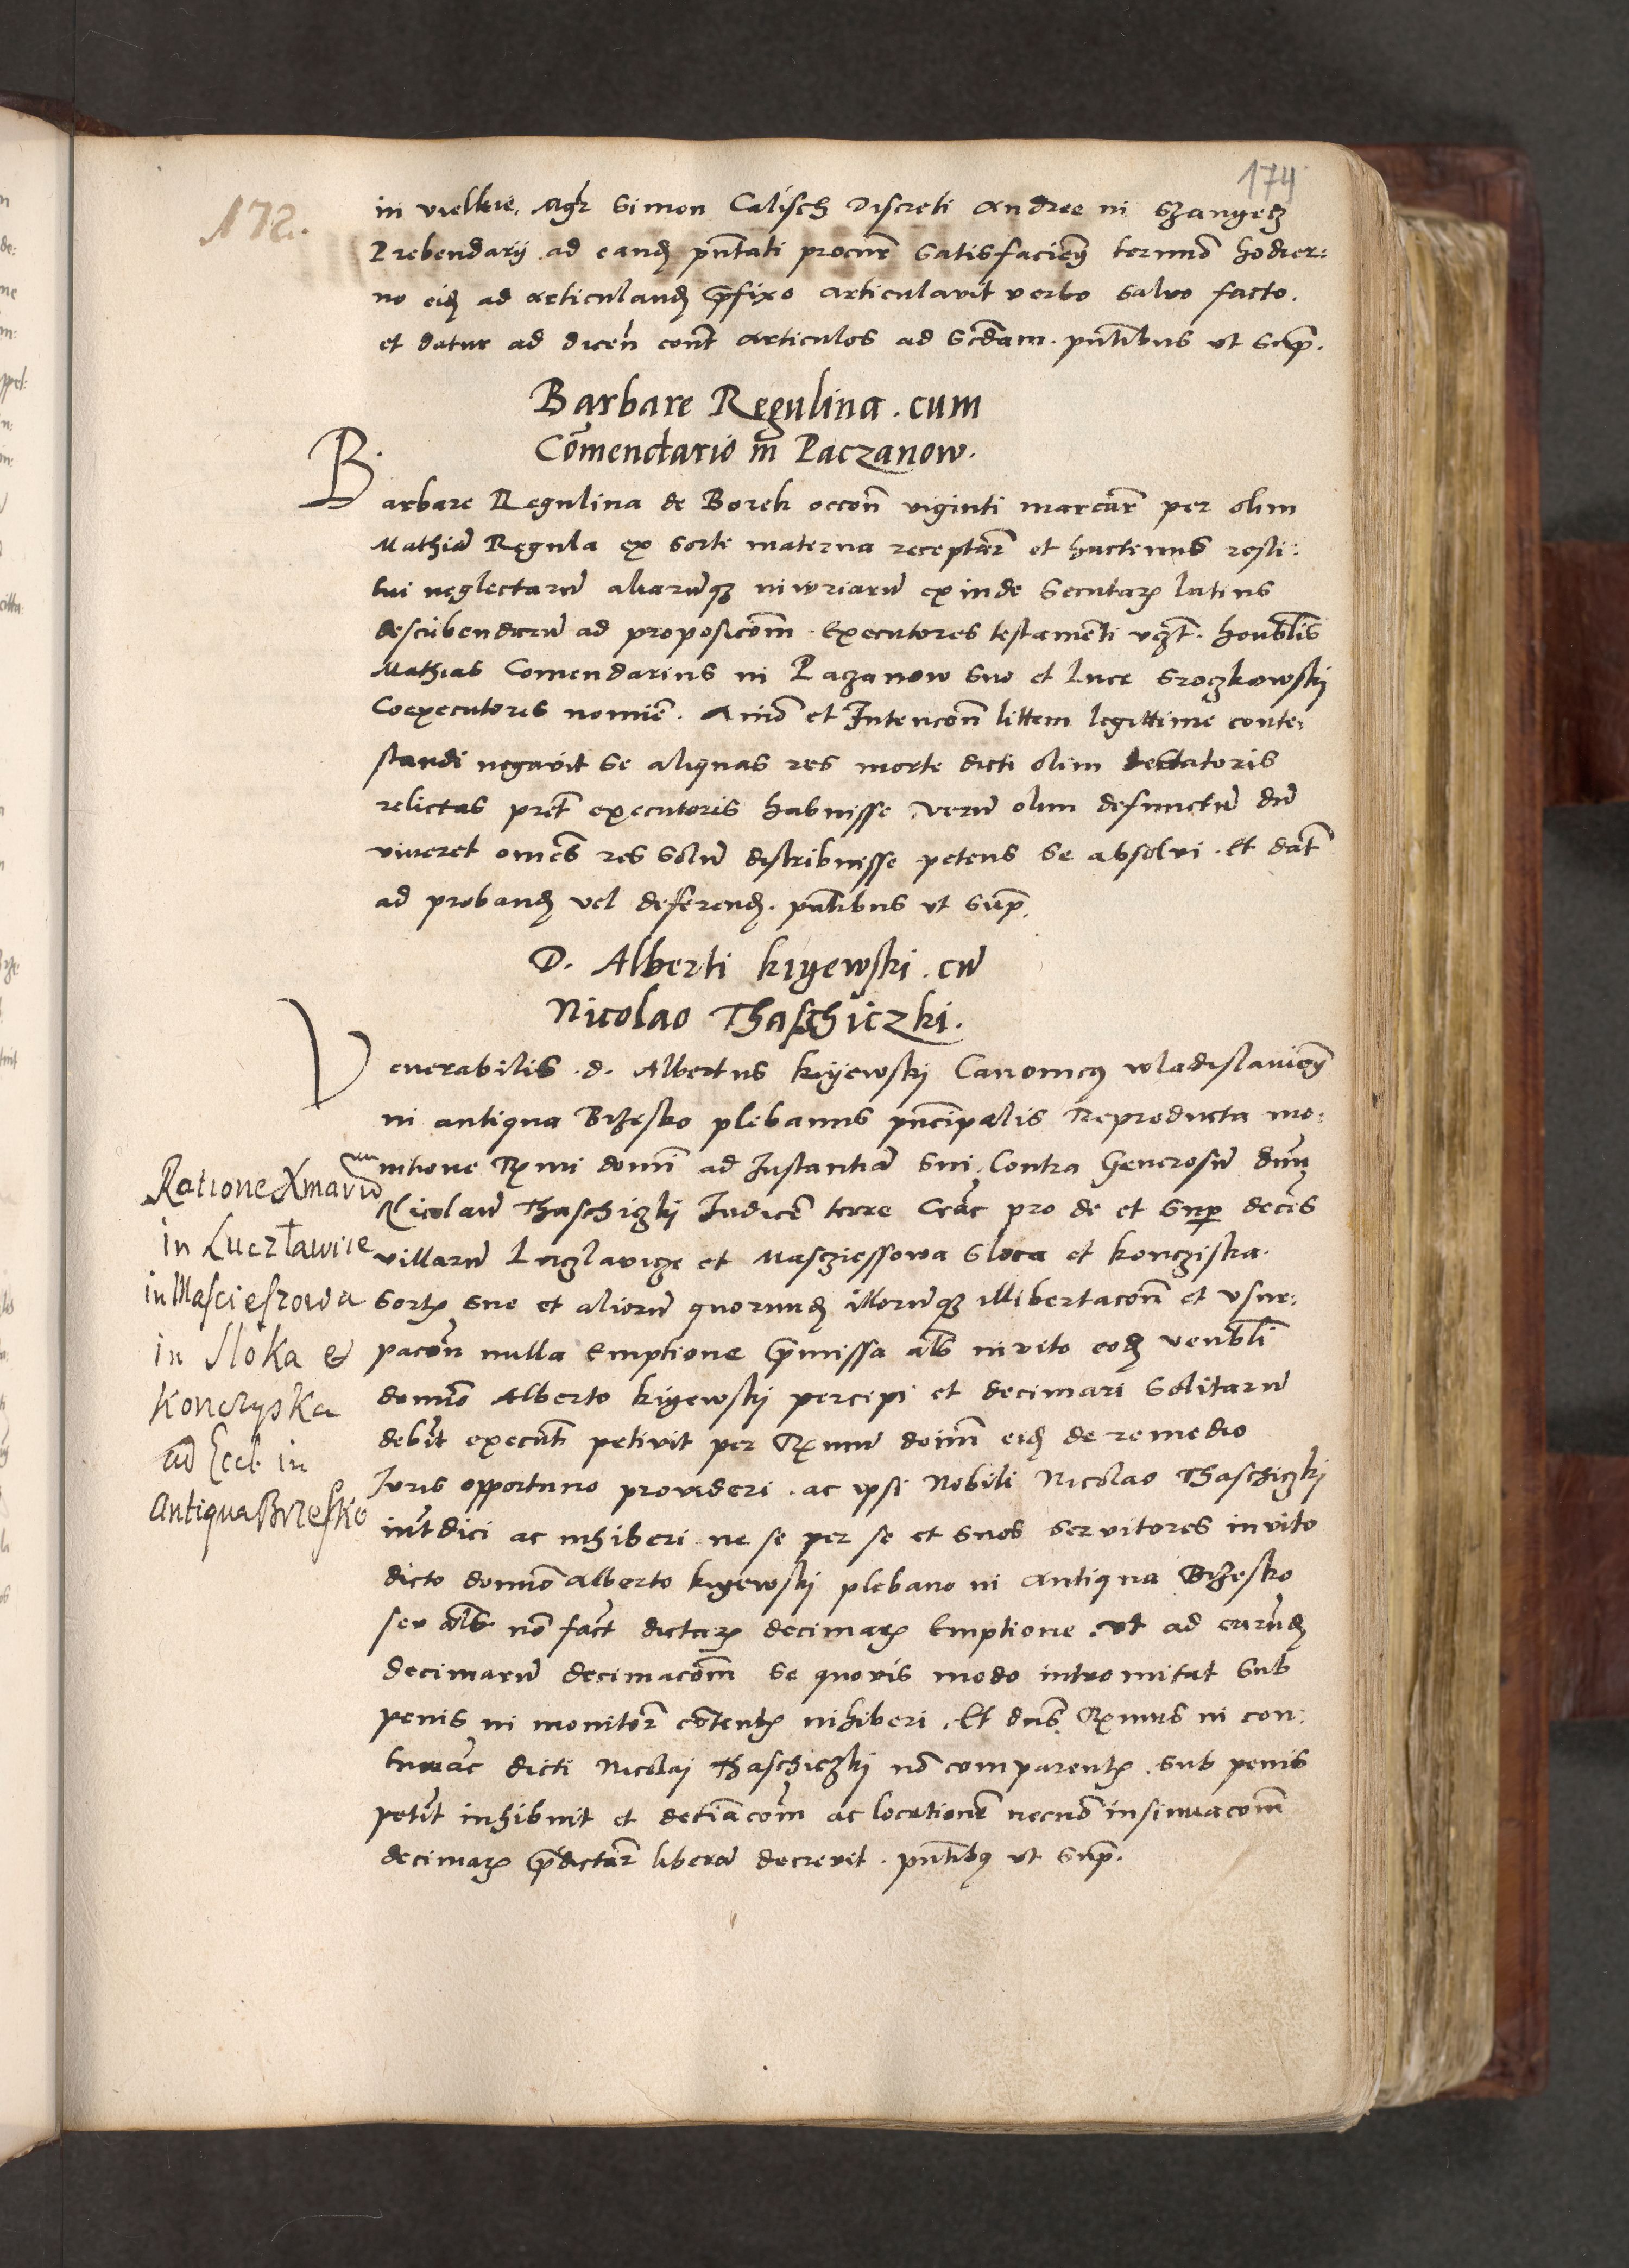 174
172.
in vielkie. Mgr Simon Calisch Discreti Andree in Szangecz
Prebendarij ad eand pntati procur satisfacieñ termino hodier:
no eid ad articuland pfixo articulavit verbo salvo facto.
et datur ad dicen cont articulos ad scdam. pntibus ut sup.
Barbare Regulina. cum
Comendario in Paczanow.
Barbare Regulina de Borek occon viginti marcar per olim
Mathia Regula ex sorte materna receptar et hactenus resti:
tui neglectaru aliaruq iniuriaru exinde secutar latius
describendaru ad proposicom. Executores testamenti vzt. honblis
Mathias Comendarius in Paczanow suo et Luce Sroczkowskij
Coexecutoris nomie. Anio et Intencon littem legittime conte:
standi negavit se aliquas res morte dicti olim testatoris
relictas pret executoris habuisse. veru olim defunctu du
viveret omes res solu distribuisse petens se absolvi. Et dat
ad proband vel deferend. pntibus ut sup.
D. Alberti kiyewski. cu
Nicolao Thaschiczki.
Venerabilis. d. Albertus kiyewskj Canonicq wladislavien
in antiqua Brzesko plebanus pncipalis Reproducta mo:
nitione Rmi domi ad Instantia sui. Contra Generosu dnu
Nicolau Thaschiczkj Iudice terre Crac pro de et sup decis
villaru Luczlavicze et Mascziessowa Sloca et koncziska.
sort sue et alioru quorund illoruq illibertacon et usur:
pacon nulla Emptione pmissa als invito eod venbli
domino Alberto kiyewskj percipi et decimari solitaru
debit execut petivit per Rmum doim eid de remedio
Iuris opportuno provideri. ac ipsi Nobili Nicolao Thaschiczkj
intdici ac inhiberi ne se per se et suos servitores invito
dicto domino Alberto kiyewskj plebano in Antiqua Brzesko
seu als no fact dictar decimar Emptione. ut ad earund
decimaru decimacom se quovis modo intromitat sub
penis in monitor content inhiberi. Et dns Rmus in con:
tumac dicti Nicolaj Thaschiczkj no comparent. sub penis
petit inhibuit et deciacom ac locatione necno insinuacom
decimar pdictar libera decrevit. pntibq ut sup.
Ratione Xmaru
in Luczławice
in Masciesrowa
in Sloka &
Konczyska
ad Eccl. in
Antiqua Brzesko